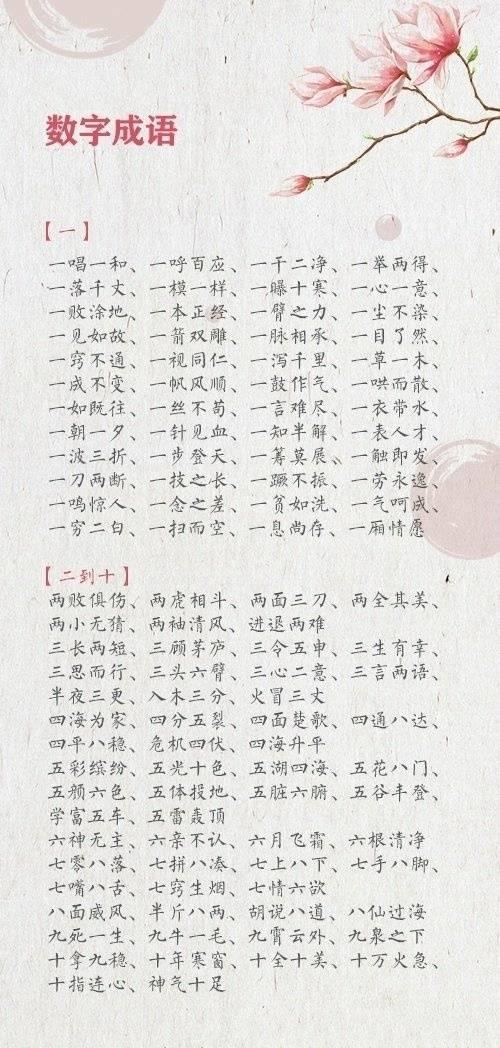 数字成语
【一】
一唱一和、一呼百应、一干二净、一举两得、
一落千丈、一模一样、一曝十寒、一心一意、
一败涂地、一本正经、一臂之力、一尘不染、
一见如故、一箭双雕、一脉相承、一目了然、
一窍不通、一视同仁、一泻千里、一草一木、
一成不变、一帆风顺、一鼓作气、一哄而散、
一如既往、一丝不苟、一言难尽、一衣带水、
一朝一夕、一针见血、一知半解、一表人才、
一波三折、一步登天、一筹莫展、一触即发、
一刀两断、一技之长、一蹶不振、一劳永逸、
一鸣惊人、一念之差、一贫如洗、一气呵成、
一穷二白、一扫而空、一息尚存、一厢情愿
【二到十】
两败俱伤、两虎相斗、两面三刀、两全其美、
两小无猜、两袖清风、进退两难
三长两短、三顾茅庐、三令五申、三生有幸、
三思而行、三头六臂、三心二意、三言两语、
半夜三更、入木三分、火冒三丈
四海为家、四分五裂、四面楚歌、四通八达、
四平八稳、危机四伏、四海升平
五彩缤纷、五光十色、五湖四海、五花八门、
五颜六色、五体投地、五脏六腑、五谷丰登、
学富五车、五雷轰顶
六神无主、六亲不认、六月飞霜、六根清净
七零八落、七拼八凑、七上八下、七手八脚、
七嘴八舌、七窍生烟、七情六欲
八面威风、半斤八两、胡说八道、八仙过海
九死一生、九牛一毛、九霄云外、九泉之下
十拿九稳、十年寒窗、十全十美、十万火急、
十指连心、神气十足